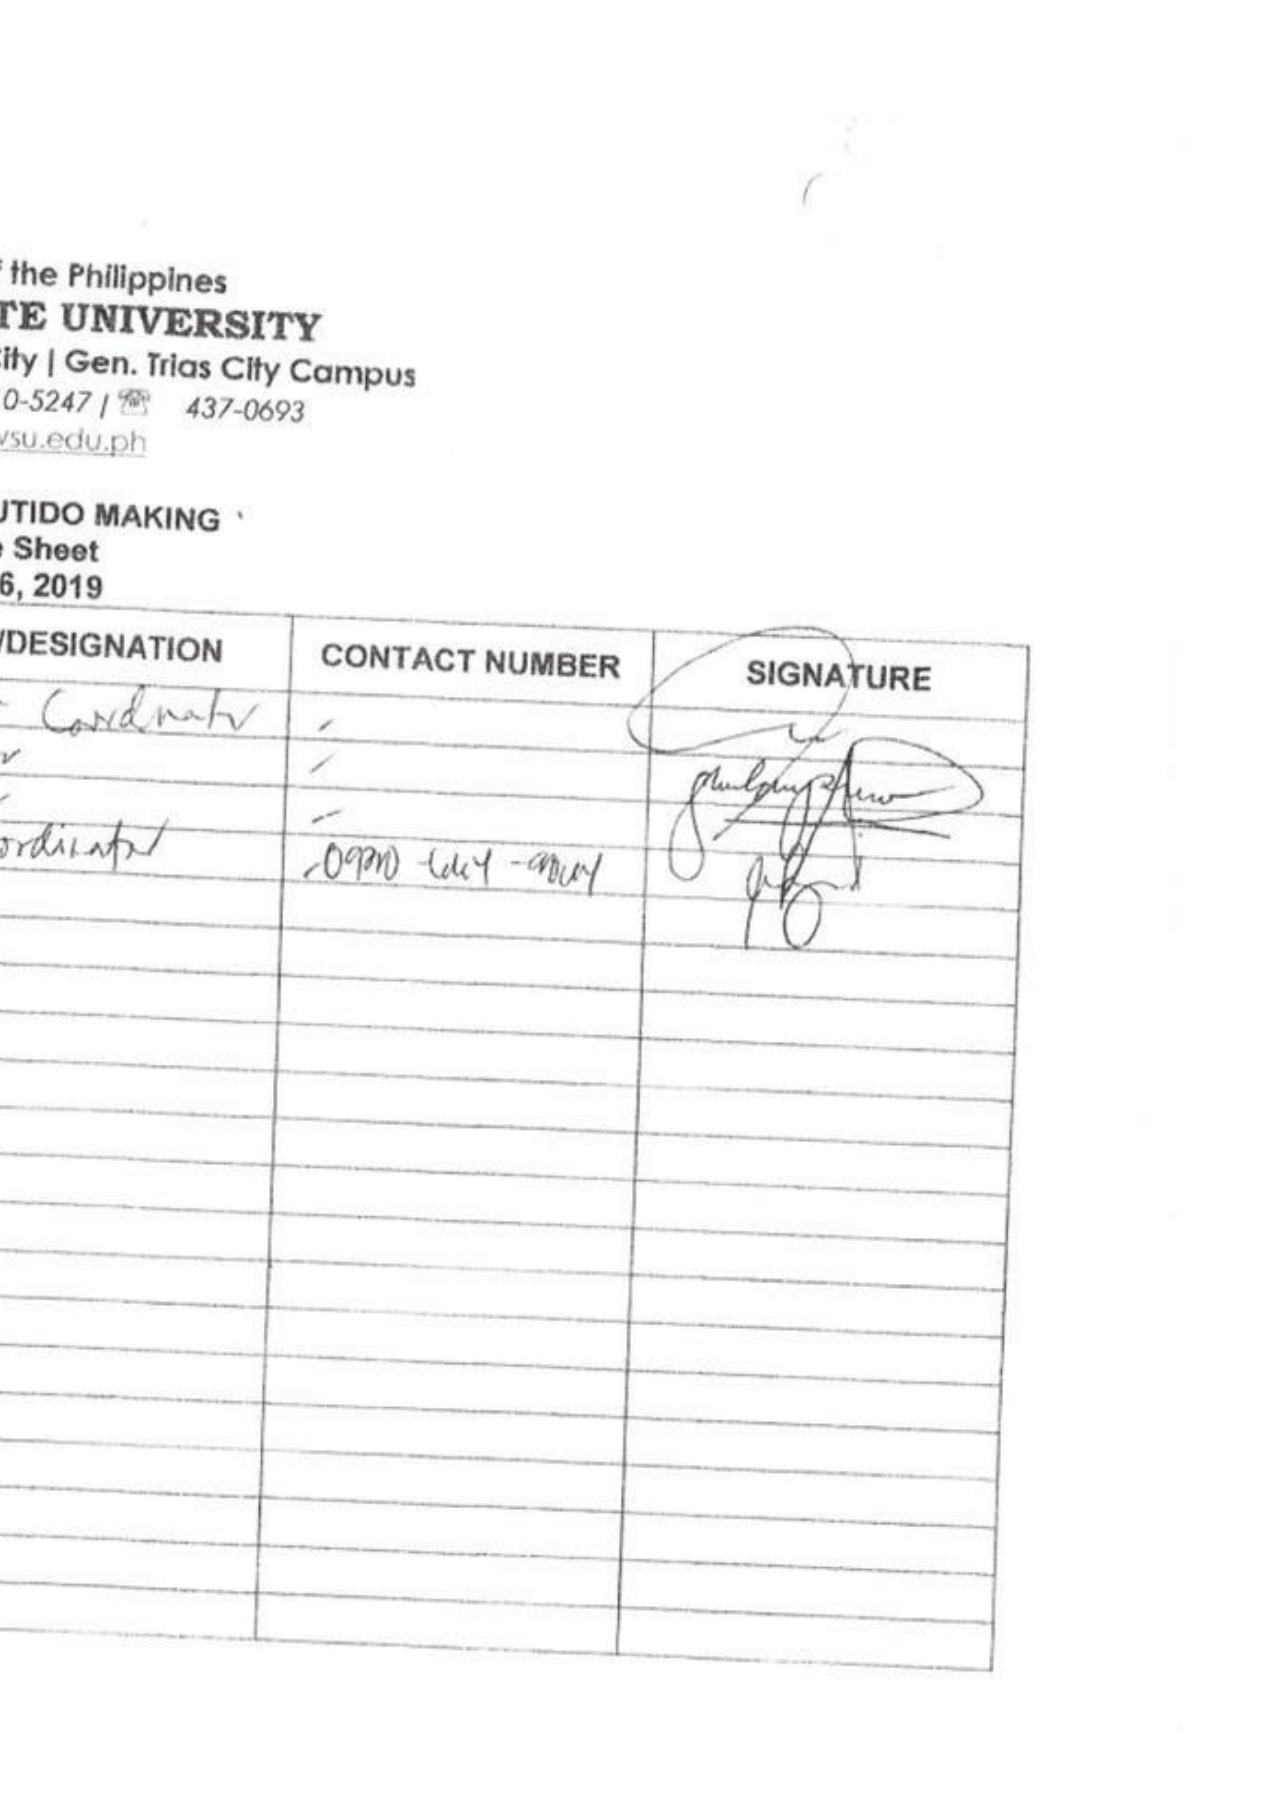 f the Philippines
TE UNIVERSITY
City | Gen. Trias City Campus
0-5247 | ☏ 437-0693
vsu.edu.ph
UTIDO MAKING
e Sheet
6, 2019
/DESIGNATION CONTACT NUMBER SIGNATURE
Coordinator
ordinator